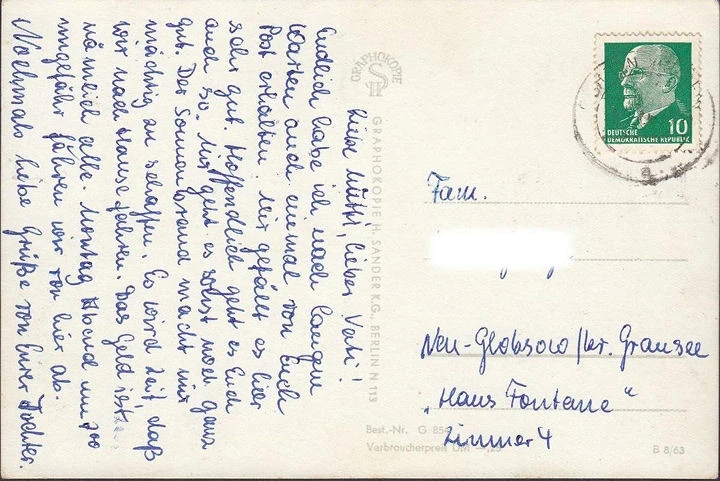 Liebe Mutti, lieber Vati!
Endlich habe ich nach langem
Warten auch einmal von Euch
Post erhalten. Mir gefällt es hier
sehr gut. Hoffendlich geht es Euch
auch so. Mir geht es sonst noch ganz
gut. Der Sonnenbrand macht mir
mächtig zu schaffen. Es wird Zeit, daß
wir nach Hause fahren. Das Geld ist
nämlich alle. Montag Abend um
ungefähr fahren wir von hier ab.
Nochmals liebe Grüße von Eurer Tochter.
GRAPHOKOPIE
GRAPHOKOPIE H. SANDER K.G., BERLIN N 113
10
DEUTSCHE
DEMOKRATISCHE REPUBLIK
Fam.
Neu-Globsow/kr. Gransee
„Haus Fontane"
Zimmer 4
Best.-Nr. G 854
Verbraucherpreis DM —,25
B 8/63